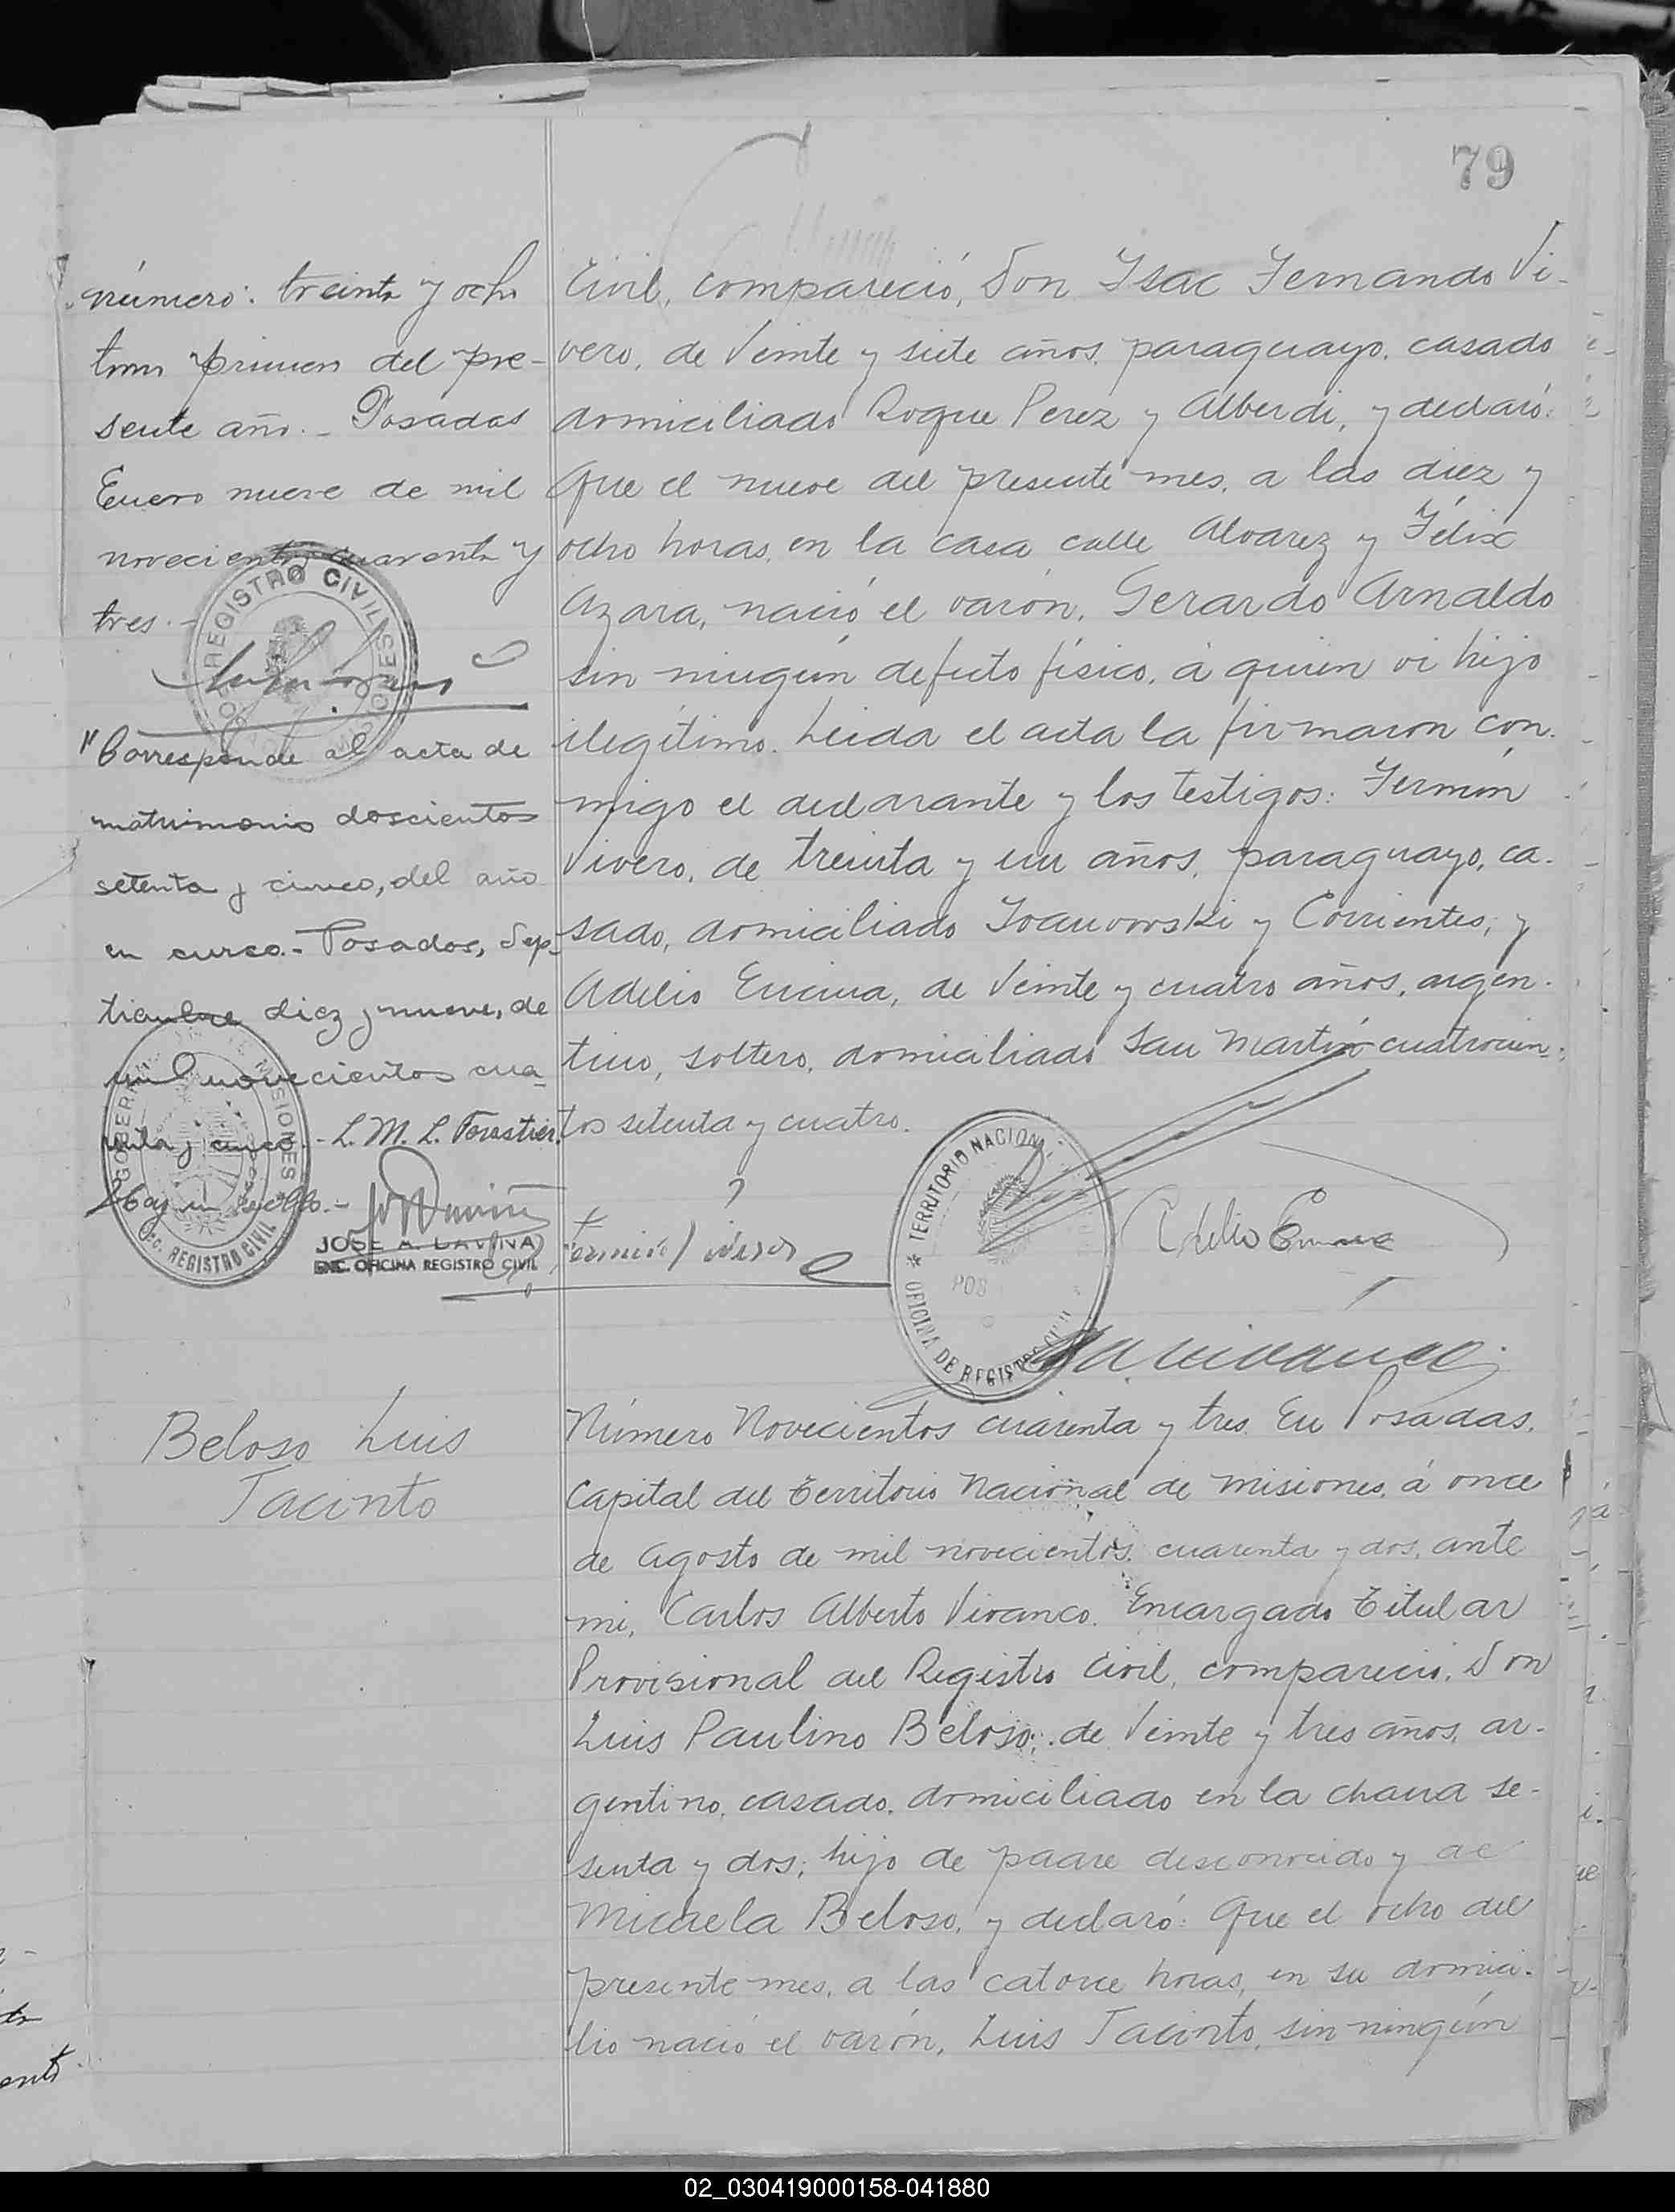 79
número: treinta y ocho
tomo primero del pre-
sente año.- Posadas
Enero nueve de mil
novecientos cuarenta y
tres.-
REGISTRO CIVIL
MISIONES
"Corresponde al acta de
matrimonio doscientos
setenta y cinco, del año
en curso.- Posadas, Sep-
tiembre diez y nueve, de
mil novecientos cua-
renta y cinco.- L. M. L. Forastier.
Hay un sello.-
GOBERN MISIONES
REGISTRO CIVIL
JOSE A. LAVIÑA
ENC. OFICINA REGISTRO CIVIL
Civil, compareció, Don Isac Fernando Vi-
vero, de veinte y siete años, paraguayo, casado
domiciliado Roque Perez y Alberdi, y declaró:
Que el nueve del presente mes, a las diez y
ocho horas, en la casa calle Alvarez y Félix
Azara, nació el varón, Gerardo Arnaldo
sin ningún defecto físico, á quien vi hijo
ilegítimo. Leida el acta la firmaron con-
migo el declarante y los testigos: Fermín
Vivero, de treinta y un años, paraguayo, ca-
sado, domiciliado Ivanowski y Corrientes; y
Adelio Encina, de veinte y cuatro años, argen-
tino, soltero, domiciliado San Martín cuatrocien-
tos setenta y cuatro.
Fermín Vivero
TERRITORIO NACIONAL
POS
OFICINA DE REGISTRO CIVIL
Adelio Encina
Beloso Luis
Jacinto
Número Novecientos cuarenta y tres. En Posadas,
Capital del Territorio Nacional de Misiones, á once
de Agosto de mil novecientos cuarenta y dos, ante
mi, Carlos Alberto Vivanco. Encargado Titular
Provisional del Registro Civil, compareció, Don
Luis Paulino Beloso; de veinte y tres años, ar-
gentino, casado, domiciliado en la chacra se-
senta y dos; hijo de padre desconocido y de
Micaela Beloso, y declaró: Que el ocho del
presente mes, a las catorce horas, en su domici-
lio nació el varón, Luis Jacinto, sin ningún
02_030419000158-041880